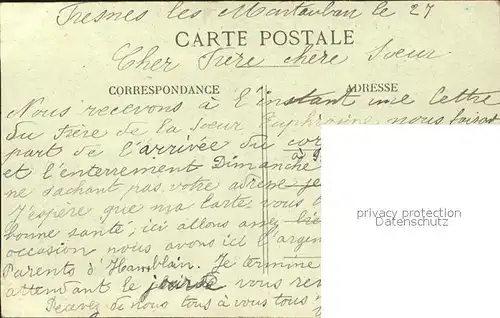 Fresnes les Montauban le 27
CARTE POSTALE
Cher Frère chère Soeur
CORRESPONDANCE
ADRESSE
Nous recevons à l'instant une lettre
du frère de la Soeur Euphrasine nous faisant
part de l'arrivée du cor
et l'enterrement Dimanche à
ne sachant pas votre adresse je
J'espère que ma carte vous
bonne santé; ici allons
occasion nous avons ici l'argen
Parents d'Hamblain. Je termine
attendant le jour de vous rev
Recevez de nous tous à vous tous
privacy protection
Datenschutz